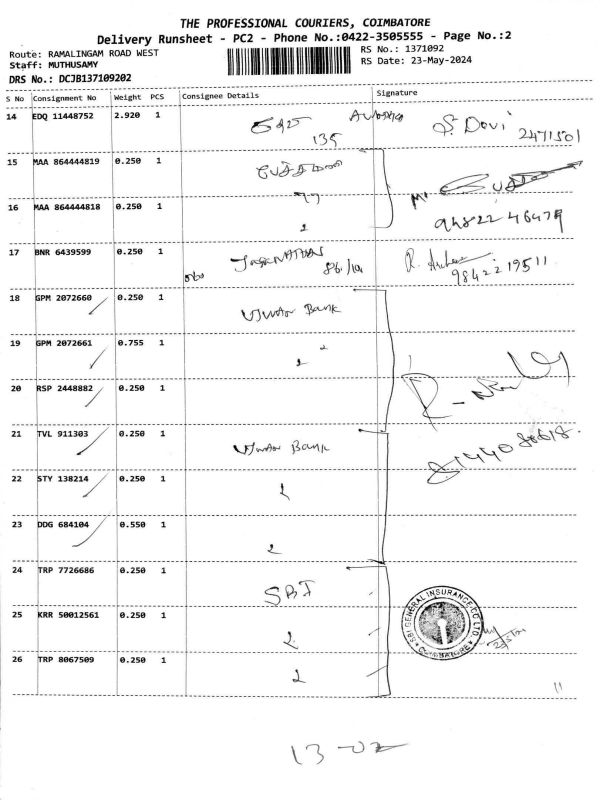 THE PROFESSIONAL COURIERS, COIMBATORE
Delivery Runsheet - PC2 - Phone No.:0422-3505555 - Page No.:2
Route: RAMALINGAM ROAD WEST
Staff: MUTHUSAMY
DRS No.: DCJB137109202
RS No.: 1371092
RS Date: 23-May-2024
S No Consignment No Weight PCS Consignee Details Signature
14 EDQ 11448752 2.920 1 S. Devi
135 2471501
15 MAA 864444819 0.250 1
16 MAA 864444818 0.250 1
17 BNR 6439599 0.250 1
98422 19511
18 GPM 2072660 0.250 1 Bank
19 GPM 2072661 0.755 1
20 RSP 2448882 0.250 1
21 TVL 911303 0.250 1 Bank
22 STY 138214 0.250 1
23 DDG 684104 0.550 1
24 TRP 7726686 0.250 1 SBI
25 KRR 50012561 0.250 1 SBI GENERAL INSURANCE CO LTD. COIMBATORE
26 TRP 8067509 0.250 1